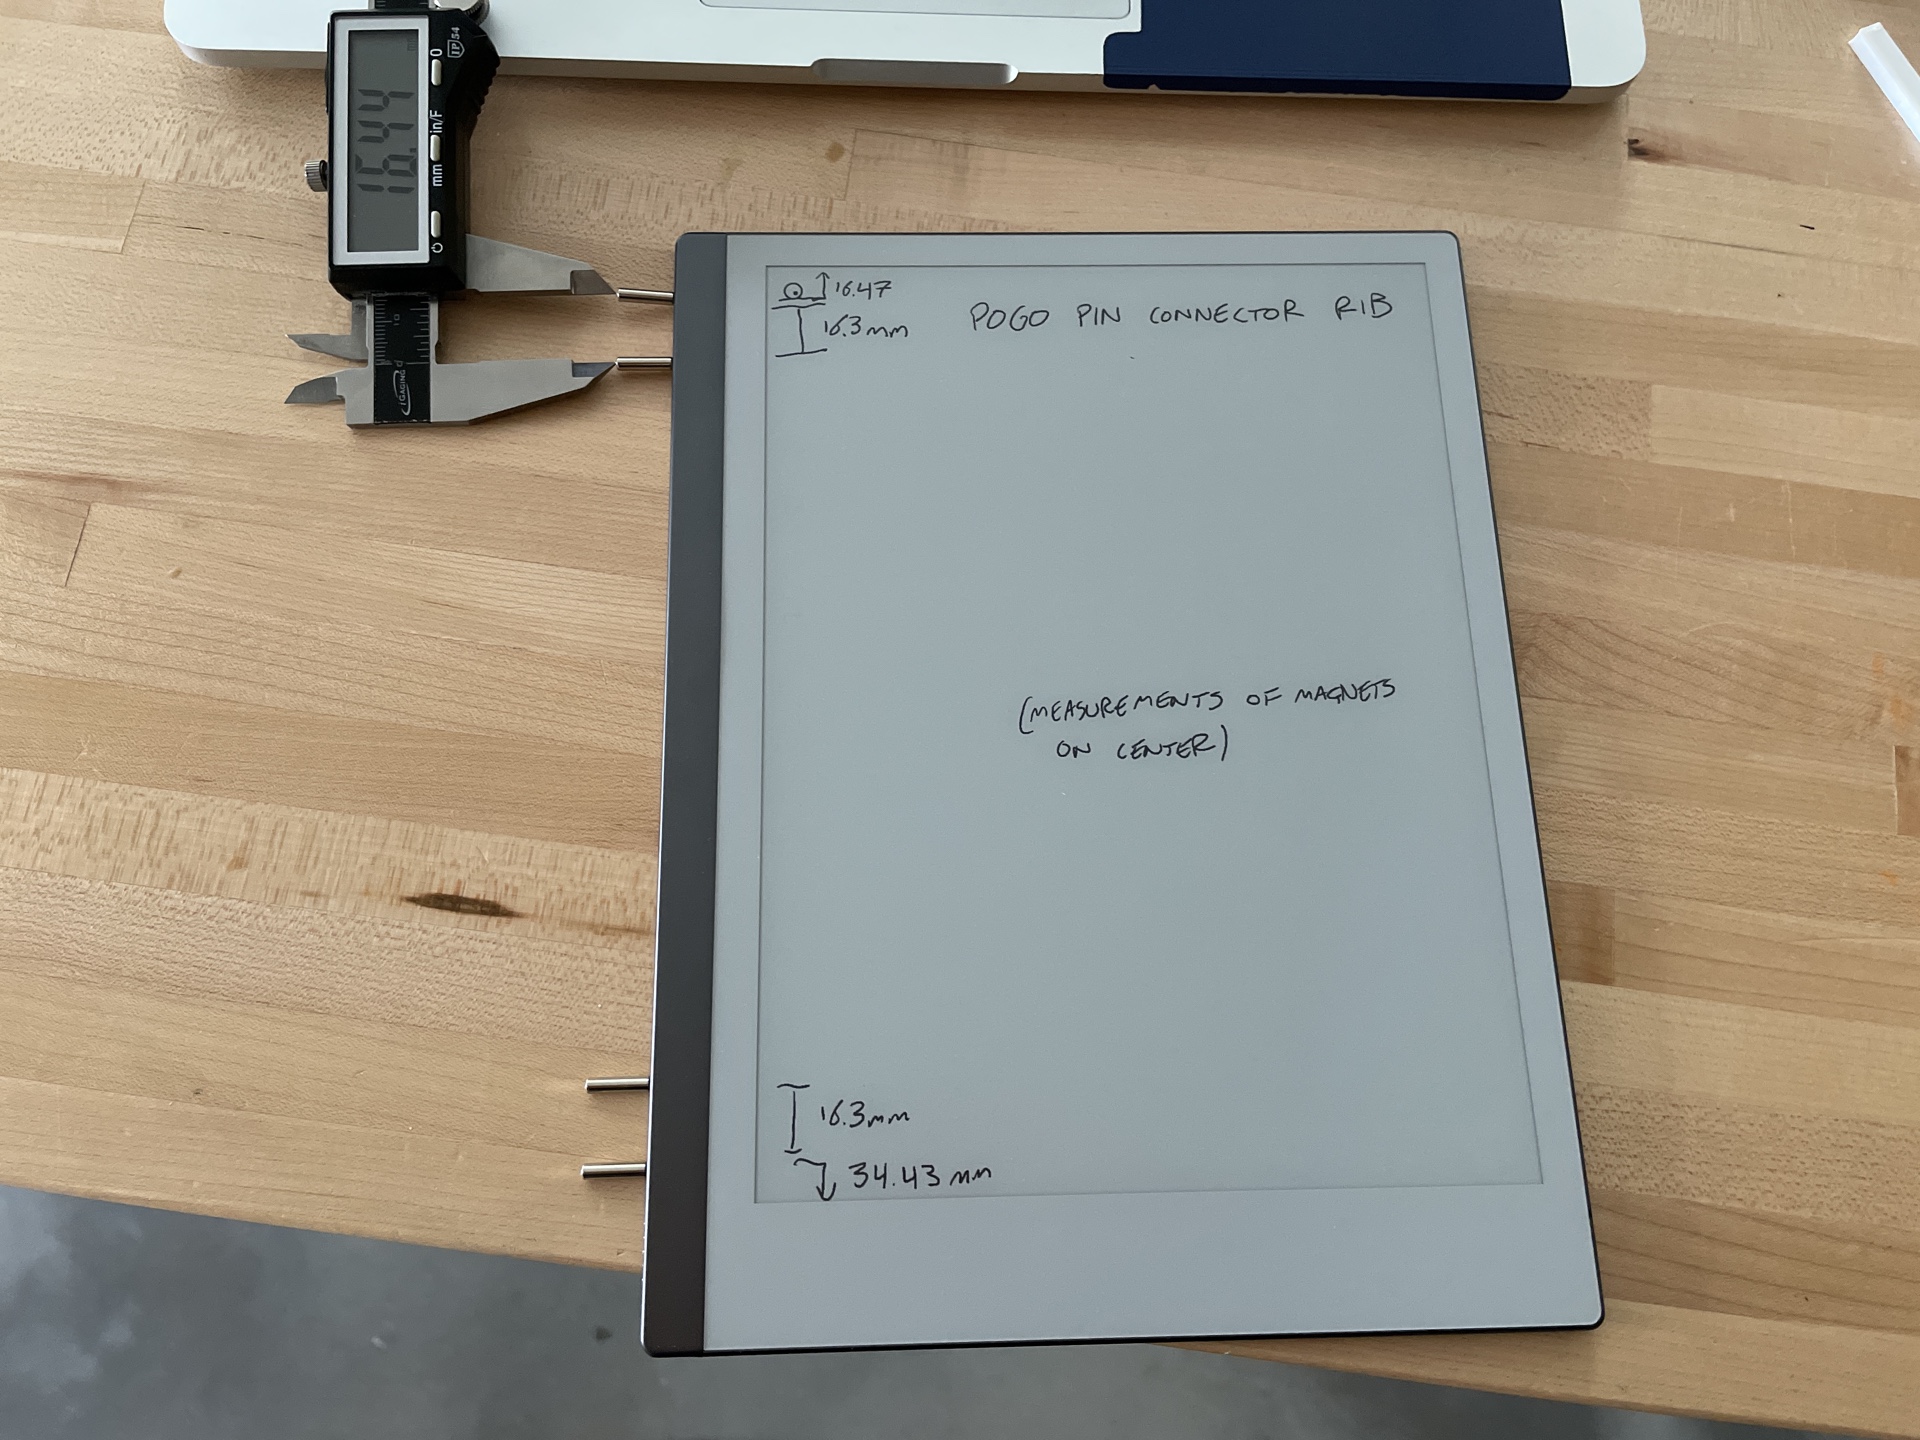 IP54
0
in/F
mm
16.44
iGAGING
16.47
16.3mm
POGO PIN CONNECTOR RIB
(MEASUREMENTS OF MAGNETS
ON CENTER)
16.3mm
34.43mm